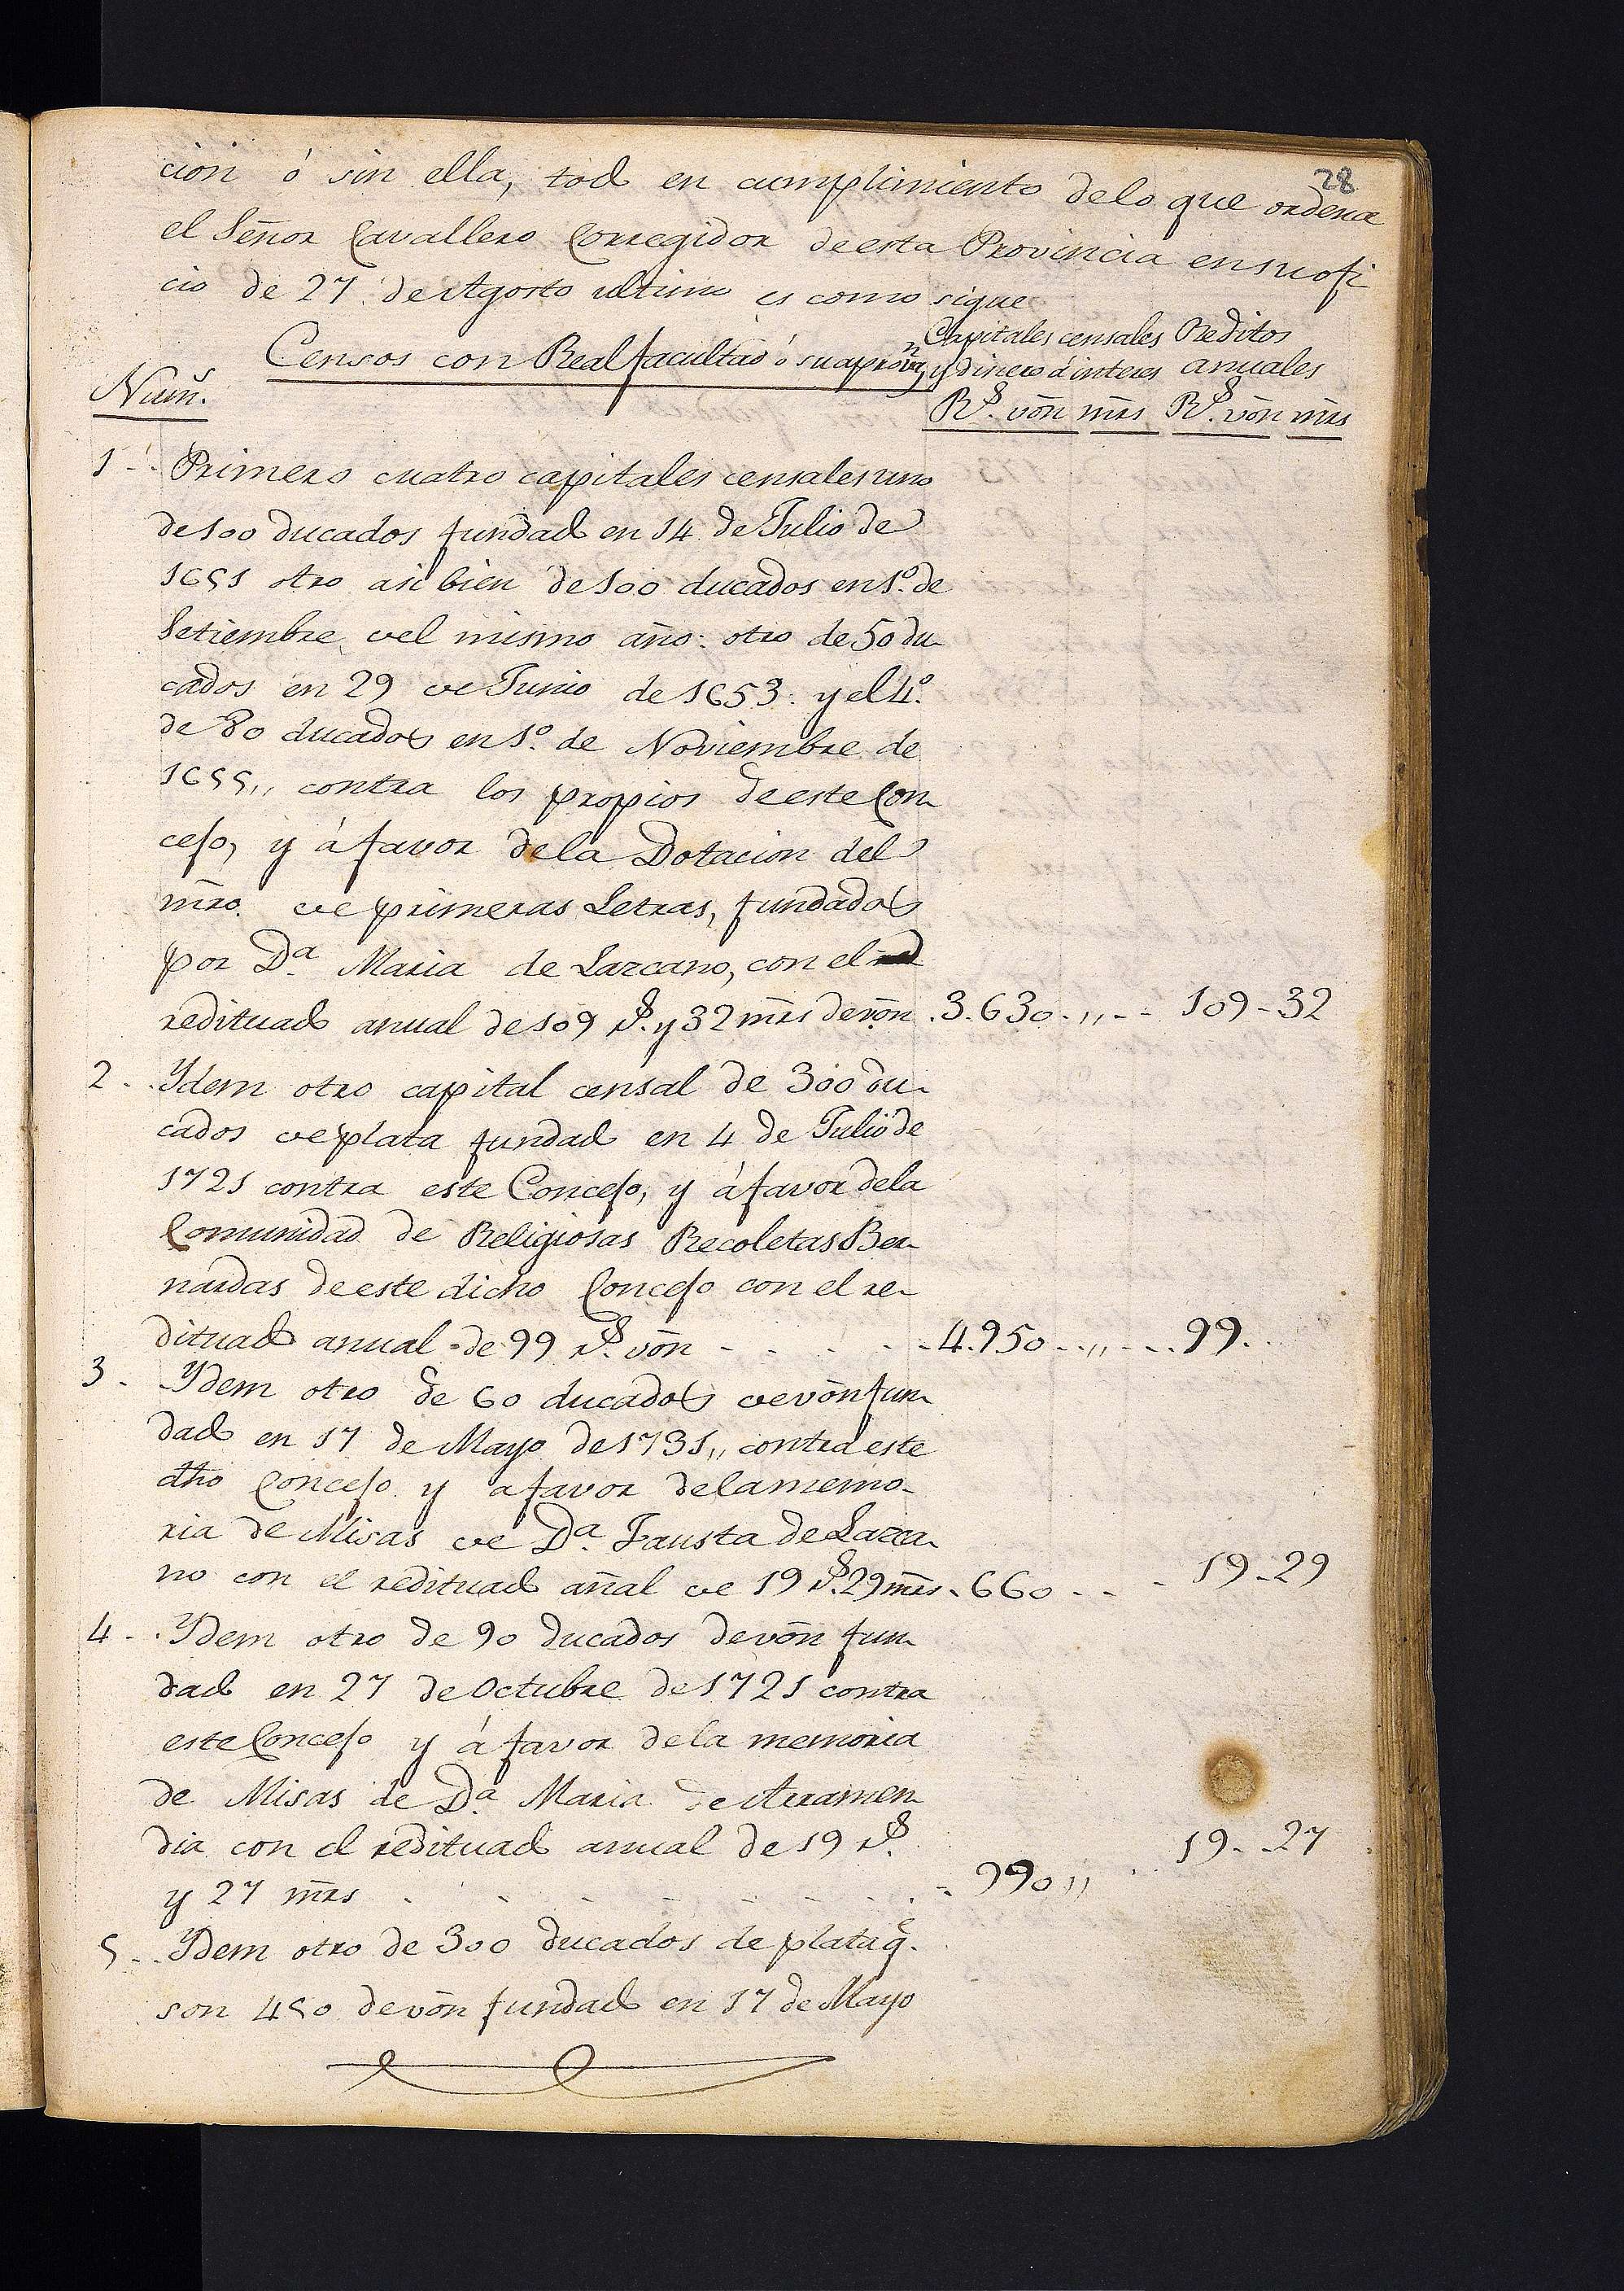 28
cion ó sin ella, todo en cumplimiento delo que ordena
el Señor Cavallero Corregidor de esta Provincia en su ofi
cio de 27 de Agosto ultimo es como sigue
Capitales censales Reditos
Censos con Real facultad ó su aprovn. y dinero á interes anuales
Num.
Rs. von mrs Rs. von mrs
1 - Primero cuatro capitales censales uno
de 100 ducados fundado en 14 de Julio de
1651 otro asi bien de 100 ducados en 1º. de
Setiembre del mismo año: otro de 50 du-
cados en 29 de Junio de 1653: y el 4º.
de 80 ducados en 1º. de Noviembre de
1655,, contra los propios de este Con-
cejo, y á favor dela Dotacion del
mro. de primeras Letras, fundados
por Dª. Maria de Lazcano, con el
redituado anual de 109 rs. y 32 mrs de von . 3.630 .,, - - 109 - 32
2 - Ydem otro capital censal de 300 du-
cados de plata fundado en 4 de Julio de
1721 contra este Concejo, y á favor dela
Comunidad de Religiosas Recoletas Ber-
nardas de este dicho Concejo con el re-
dituado anual de 99 rs. von - - - - 4.950 - ,, - - 99.
3 - Ydem otro de 60 ducados de von fun-
dado en 17 de Mayo de 1731,, contra este
dho Concejo y a favor dela memo-
ria de Misas de Dª. Fausta de Lazca-
no con el redituado añal de 19 rs. 29 mrs - 660 - - - 19 - 29
4 - Ydem otro de 90 ducados de von fun-
dado en 27 de Octubre de 1721 contra
este Concejo y á favor dela memoria
de Misas de Dª. Maria de Aramen-
dia con el redituado anual de 19 rs.
y 27 mrs - - - - - - 990 ,, 19 - 27
5 - Ydem otro de 300 ducados de plata q.
son 450 de von fundado en 17 de Mayo